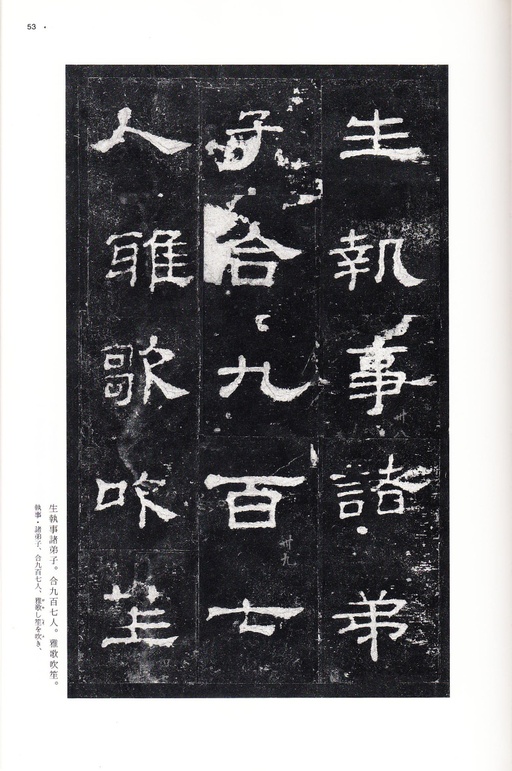 53
生執事諸弟
子合九百七
人雅歌吹笙
卅八
卅九
生執事諸弟子。合九百七人。雅歌吹笙。
執事・諸弟子、合九百七人、雅歌し笙を吹き、